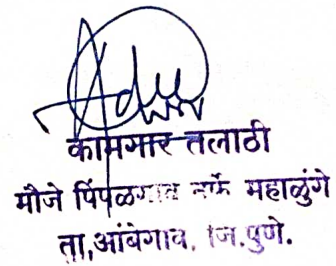 कामगार तलाठी
मौजे पिंपळगाव तर्फे महाळुंगे
ता,आंबेगाव, जि.पुणे.